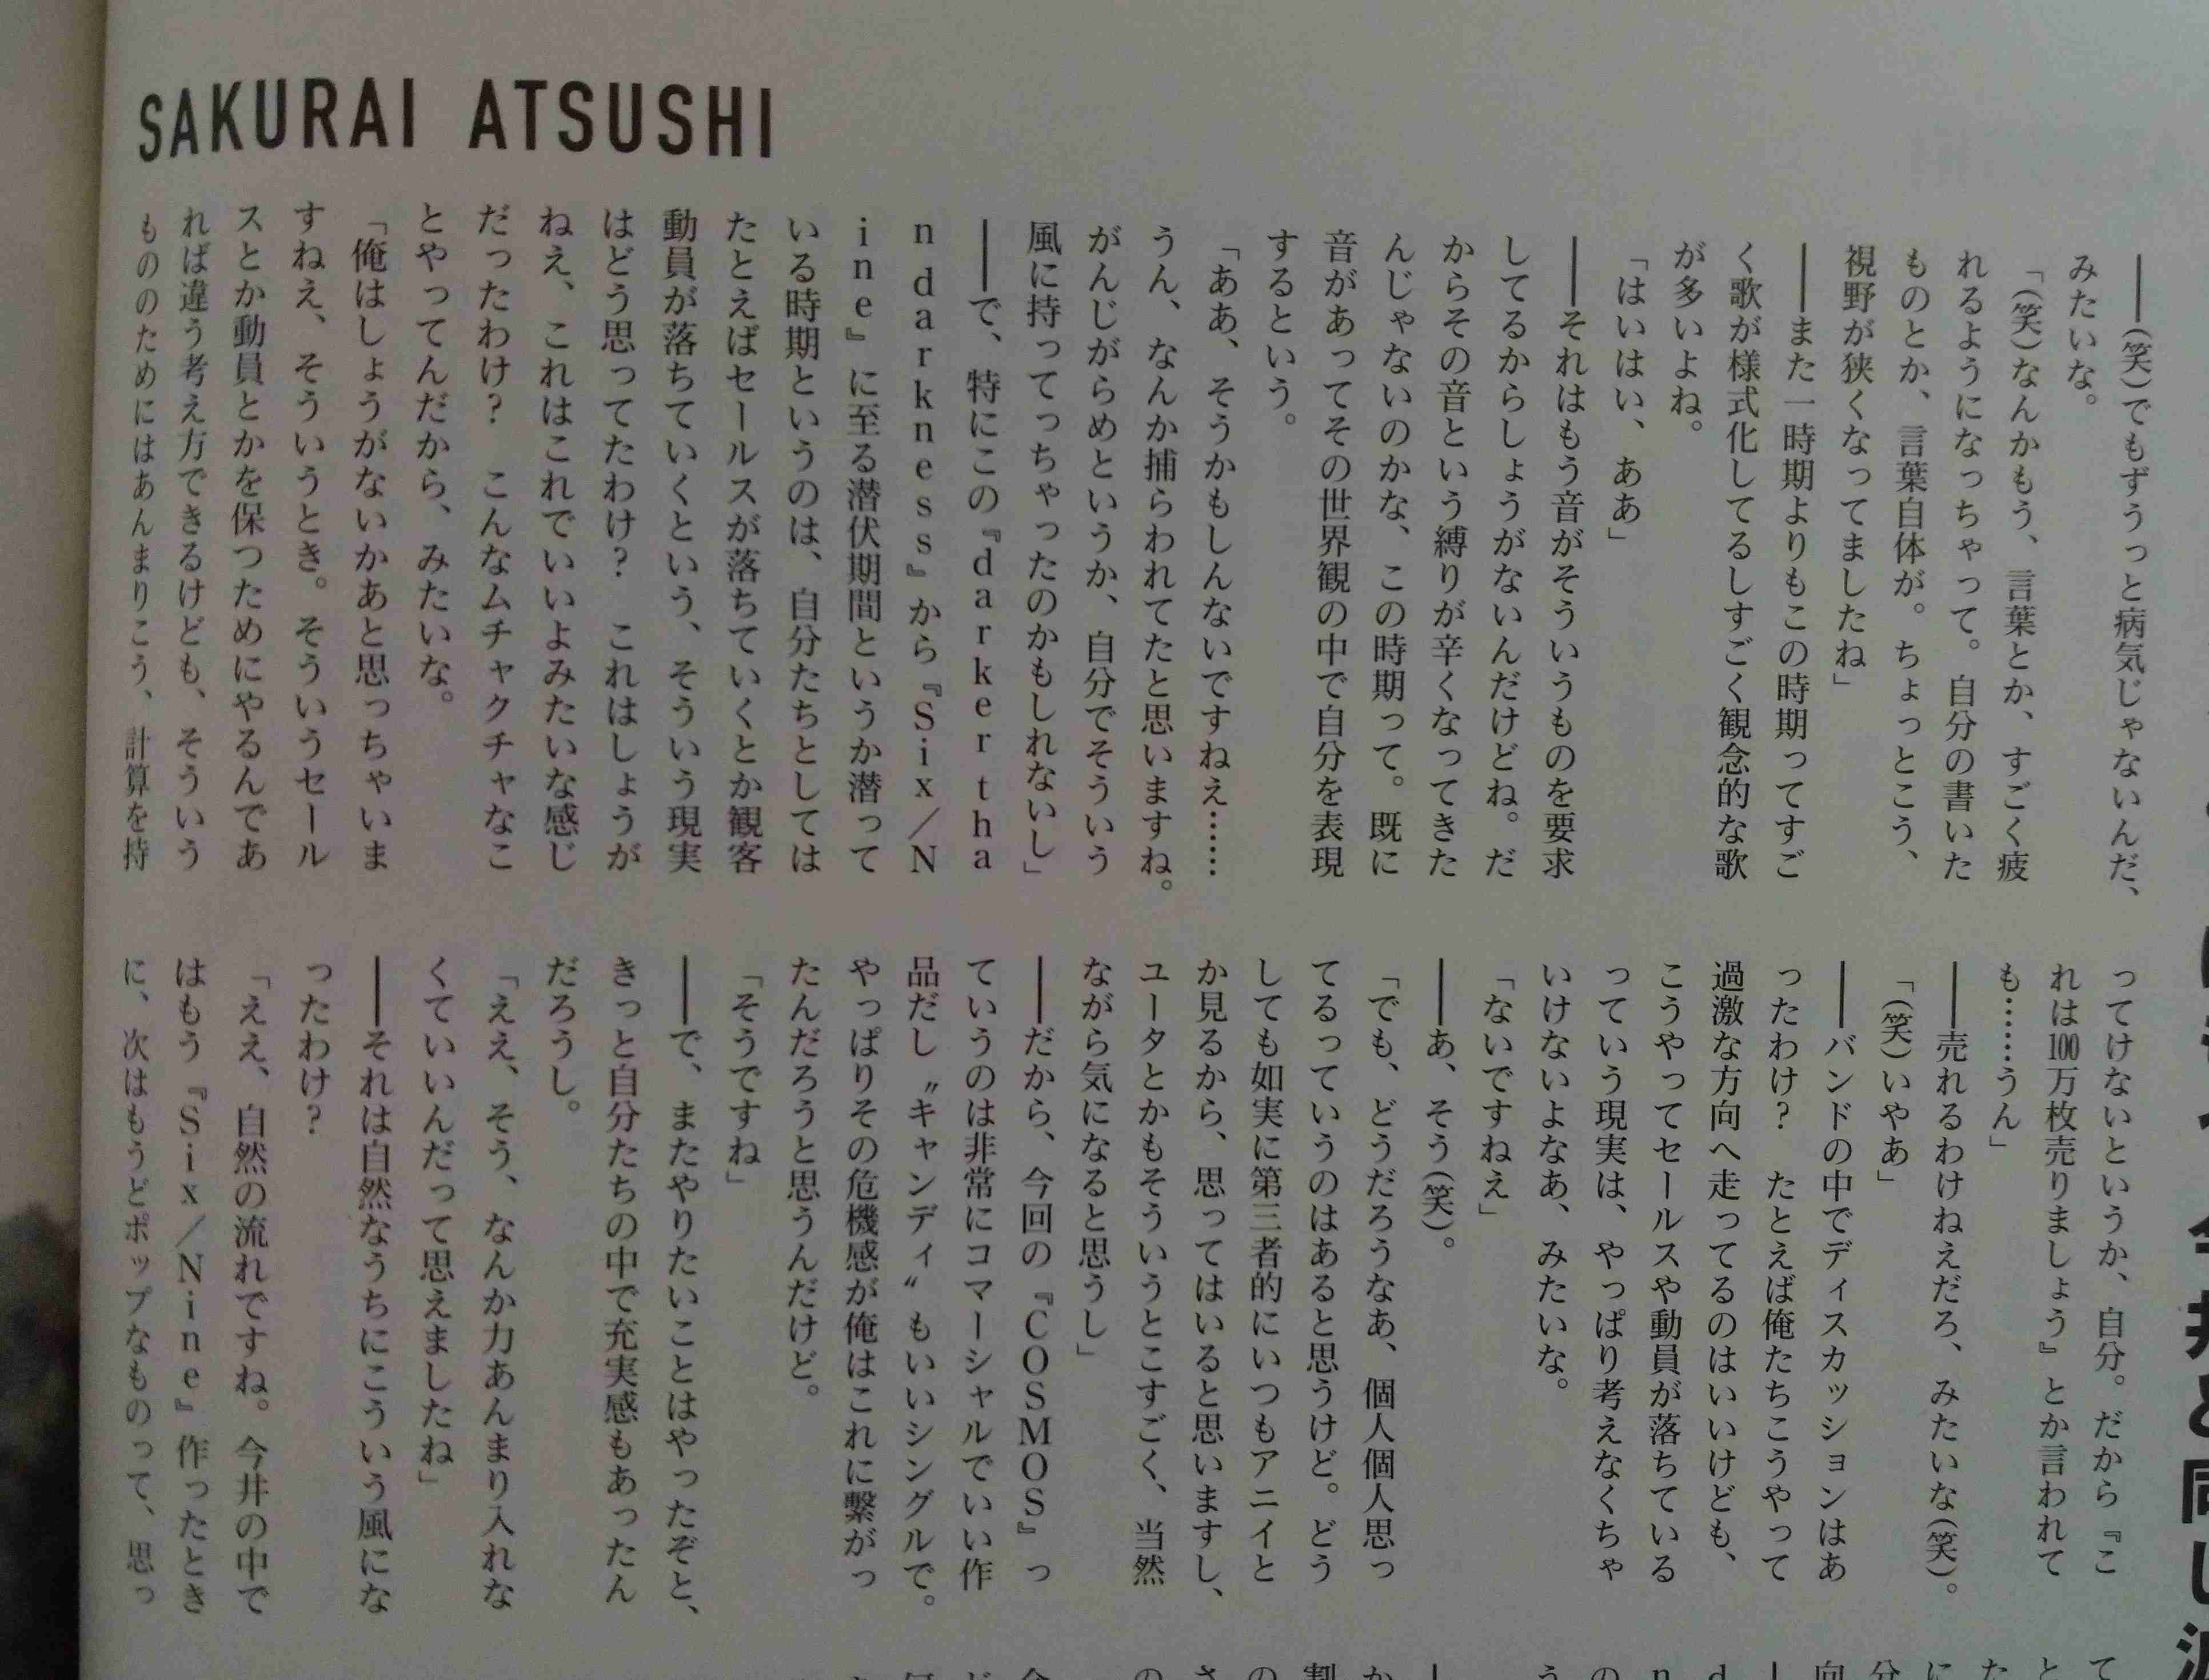 SAKURAI ATSUSHI
――(笑)でもずうっと病気じゃないんだ、
みたいな。
「(笑)なんかもう、言葉とか、すごく疲
れるようになっちゃって。自分の書いた
ものとか、言葉自体が。ちょっとこう、
視野が狭くなってましたね」
――また一時期よりもこの時期ってすご
く歌が様式化してるしすごく観念的な歌
が多いよね。
「はいはい、ああ」
――それはもう音がそういうものを要求
してるからしょうがないんだけどね。だ
からその音という縛りが辛くなってきた
んじゃないのかな、この時期って。既に
音があってその世界観の中で自分を表現
するという。
「ああ、そうかもしんないですねえ……
うん、なんか捕らわれてたと思いますね。
がんじがらめというか、自分でそういう
風に持ってっちゃったのかもしれないし」
――で、特にこの『darker tha
n darkness』から『Six／N
ine』に至る潜伏期間というか潜って
いる時期というのは、自分たちとしては
たとえばセールスが落ちていくとか観客
動員が落ちていくという、そういう現実
はどう思ってたわけ？　これはしょうが
ねえ、これはこれでいいよみたいな感じ
だったわけ？　こんなムチャクチャなこ
とやってんだから、みたいな。
「俺はしょうがないかあと思っちゃいま
すねえ、そういうとき。そういうセール
スとか動員とかを保つためにやるんであ
れば違う考え方できるけども、そういう
もののためにはあんまりこう、計算を持
ってけないというか、自分。だから『こ
れは100万枚売りましょう』とか言われて
も……うん」
――売れるわけねえだろ、みたいな(笑)。
「(笑)いやあ」
――バンドの中でディスカッションはあ
ったわけ？　たとえば俺たちこうやって
過激な方向へ走ってるのはいいけども、
こうやってセールスや動員が落ちている
っていう現実は、やっぱり考えなくちゃ
いけないよなあ、みたいな。
「ないですねえ」
――あ、そう(笑)。
「でも、どうだろうなあ、個人個人思っ
てるっていうのはあると思うけど。どう
しても如実に第三者的にいつもアニイと
か見るから、思ってはいると思いますし、
ユータとかもそういうとこすごく、当然
ながら気になると思うし」
――だから、今回の『COSMOS』っ
ていうのは非常にコマーシャルでいい作
品だし〝キャンディ〟もいいシングルで。
やっぱりその危機感が俺はこれに繋がっ
たんだろうと思うんだけど。
「そうですね」
――で、またやりたいことはやったぞと、
きっと自分たちの中で充実感もあったん
だろうし。
「ええ、そう、なんか力あんまり入れな
くていいんだって思えましたね」
――それは自然なうちにこういう風にな
ったわけ？
「ええ、自然の流れですね。今井の中で
はもう『Six／Nine』作ったとき
に、次はもうどポップなものって、思っ